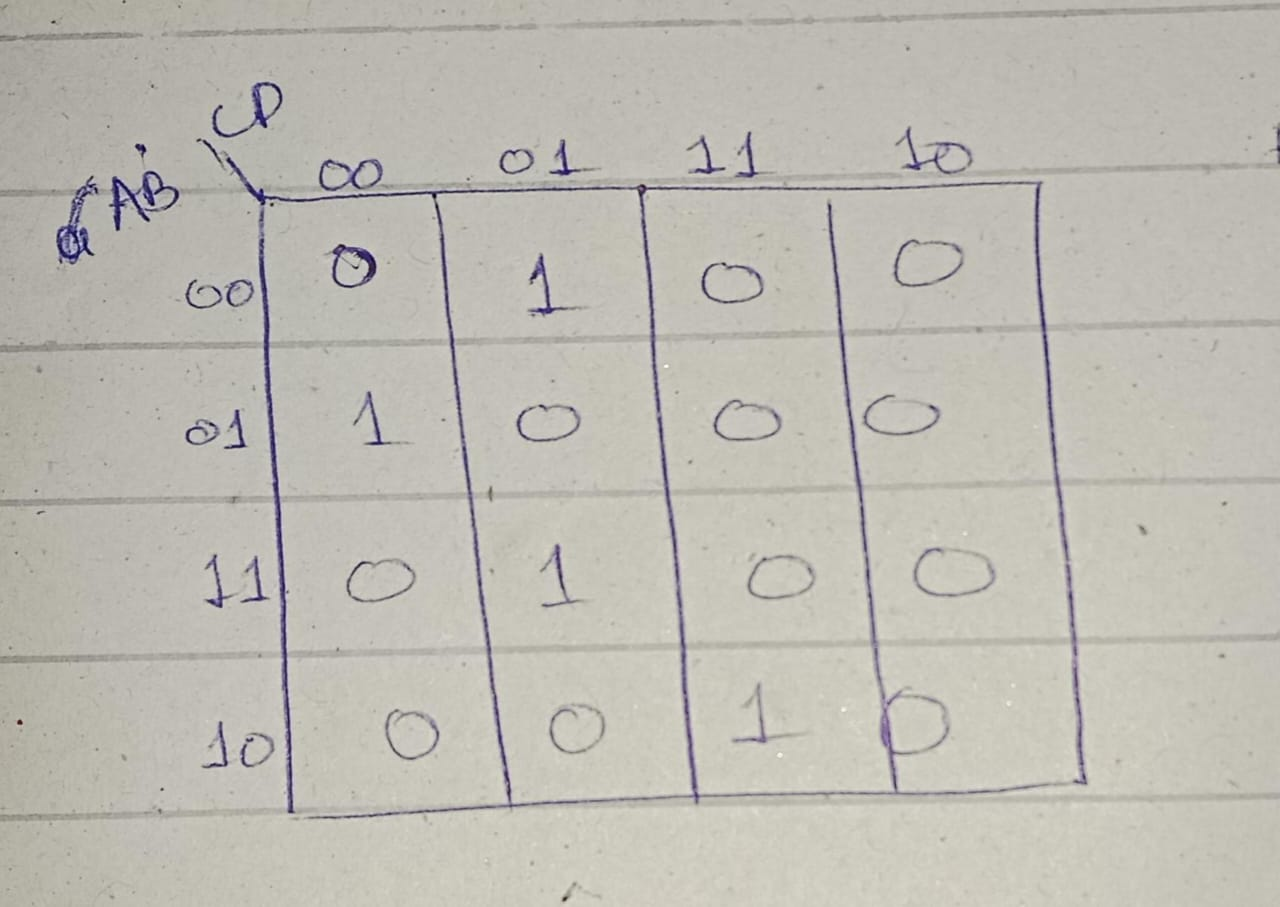 CD
AB 00 01 11 10
00 0 1 0 0
01 1 0 0 0
11 0 1 0 0
10 0 0 1 0